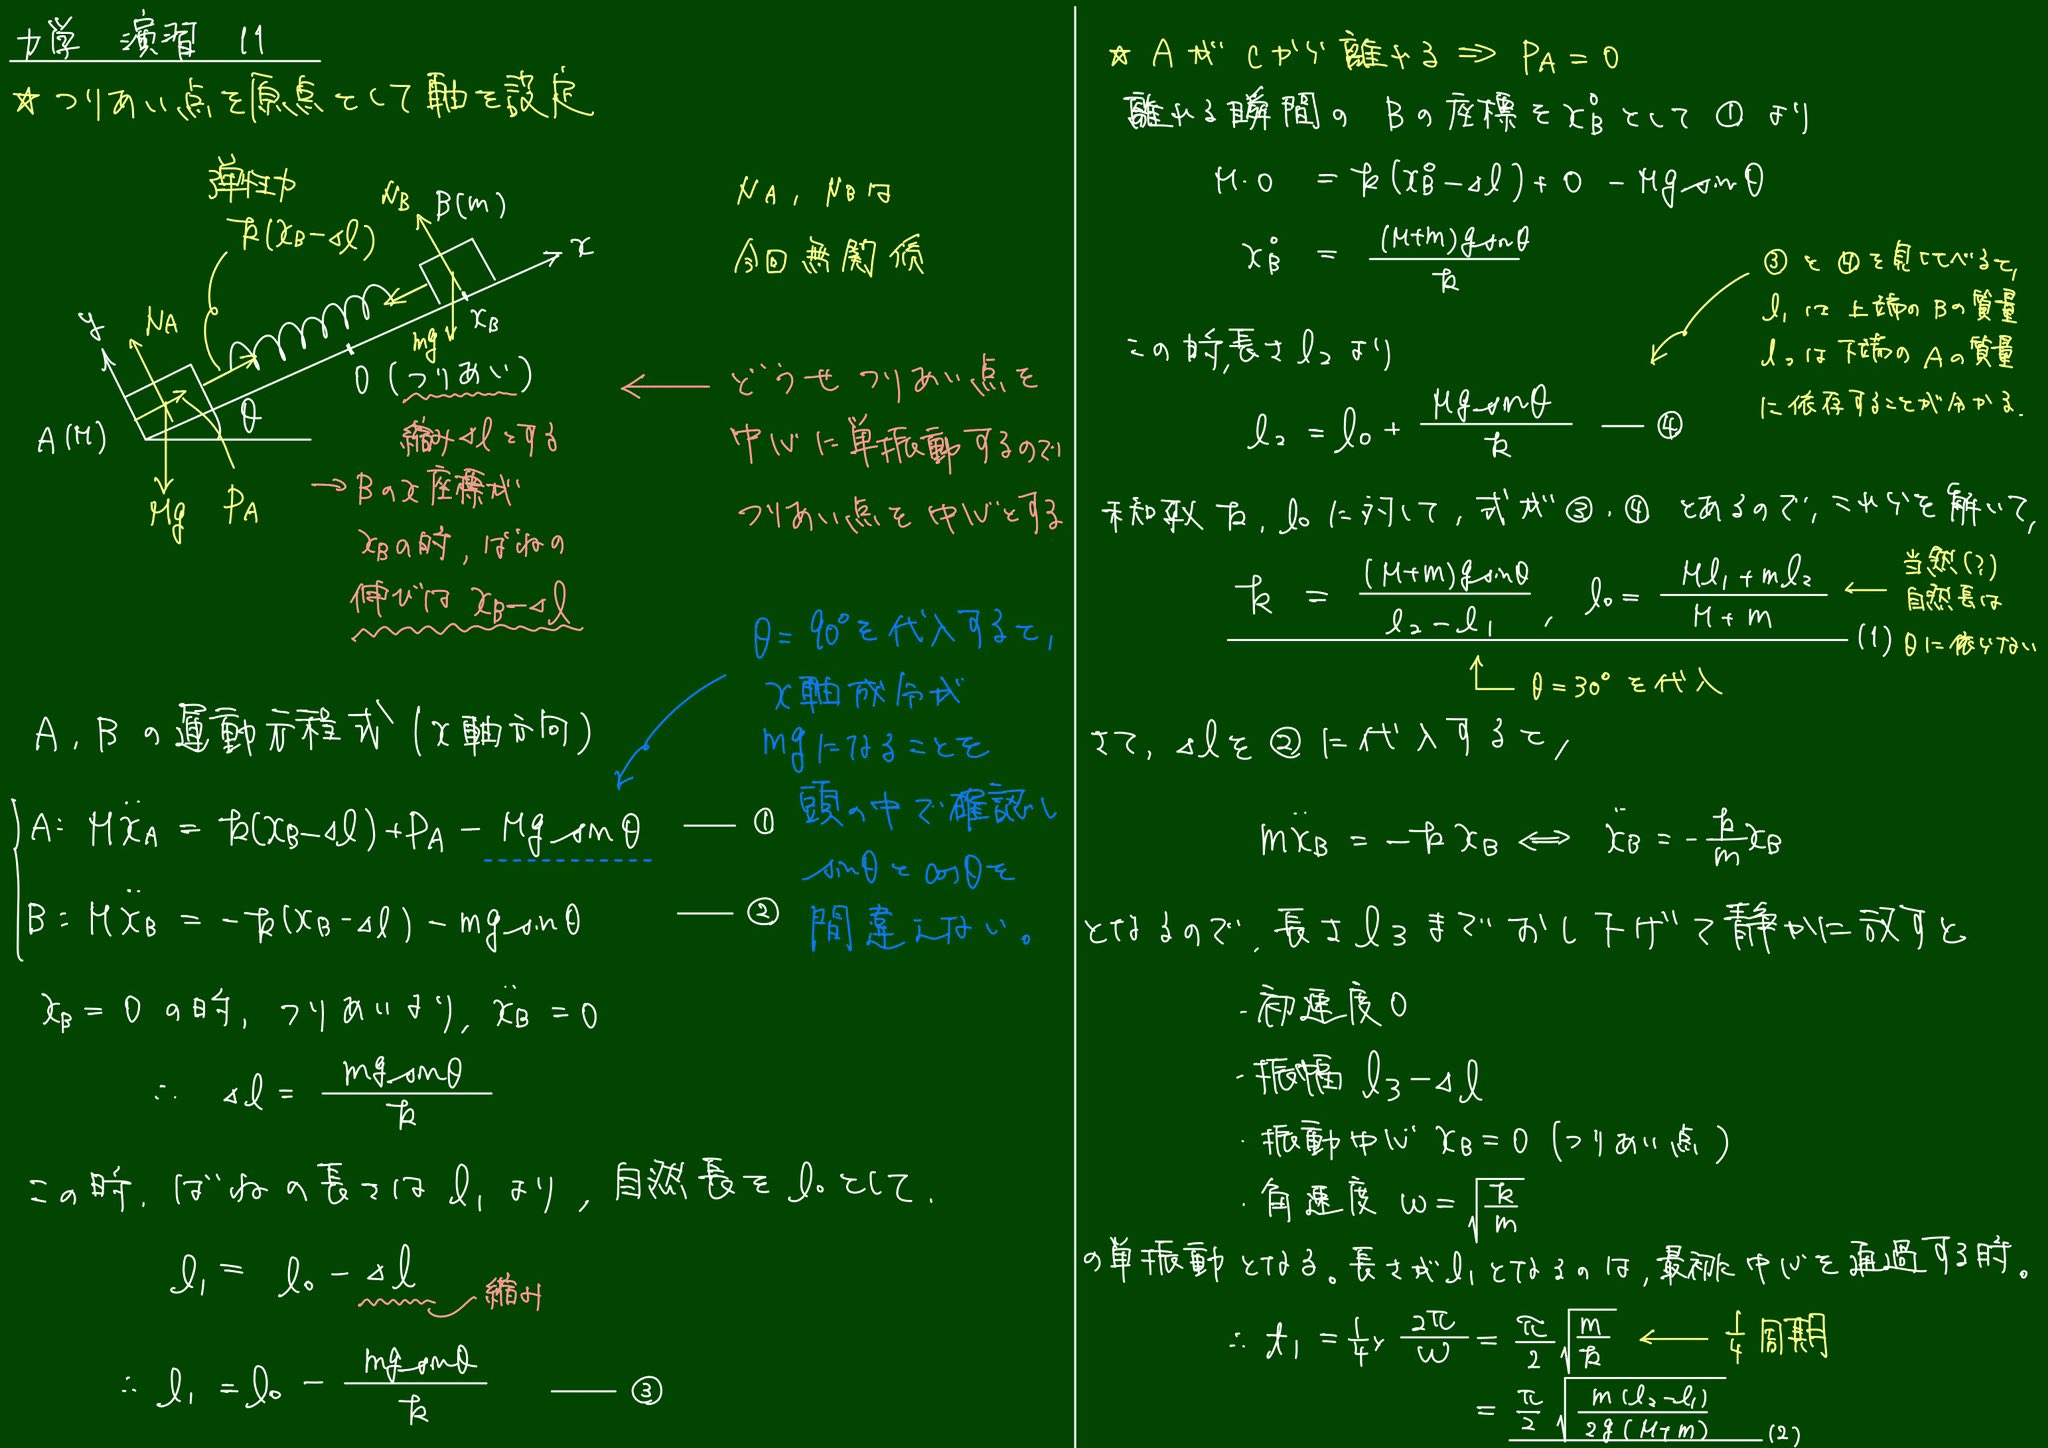 力学 演習 11
☆ つりあい点を原点として軸を設定
弾性力
k(x_B-Δl)
N_B
B(m)
x
N_A, N_Bは
今回無関係
y
N_A
mg
x_B
O (つりあい)
θ
A(M)
Mg
P_A
縮みΔlとする
→Bのx座標が
x_Bの時, ばねの
伸びは x_B-Δl
← どうせつりあい点を
中心に単振動するので
つりあい点を中心とする
θ=90°を代入すると,
x軸成分が
mgになることを
頭の中で確認し
sinθとcosθを
間違えない。
A, Bの運動方程式 (x軸方向)
A: Mẍ_A = k(x_B-Δl)+P_A - Mg sinθ ― ①
B: Mẍ_B = -k(x_B-Δl) - mg sinθ ― ②
x_B = 0 の時, つりあいより, ẍ_B = 0
∴ Δl = mg sinθ / k
この時, ばねの長さは l_1 より, 自然長を l_0 として,
l_1 = l_0 - Δl
縮み
∴ l_1 = l_0 - mg sinθ / k ― ③
☆ AがCから離れる ⇒ P_A = 0
離れる瞬間の Bの座標を x_B° として ① より
M・0 = k(x_B°-Δl) + 0 - Mg sinθ
x_B° = (M+m)g sinθ / k
③と④を見比べると,
l_1は上端のBの質量
l_2は下端のAの質量
に依存することが分かる.
この時, 長さ l_2 より
l_2 = l_0 + Mg sinθ / k ― ④
未知数 k, l_0 に対して, 式が ③, ④ とあるので, これらを解いて,
k = (M+m)g sinθ / (l_2-l_1), l_0 = (Ml_1+ml_2) / (M+m) (1)
← 当然(?)
自然長は
θに依らない
θ=30°を代入
さて, Δlを②に代入すると,
mẍ_B = -k x_B ⇔ ẍ_B = -k/m x_B
となるので, 長さ l_3 までおし下げて静かに放すと
・初速度 0
・振幅 l_3-Δl
・振動中心 x_B=0 (つりあい点)
・角速度 ω=√(k/m)
の単振動となる。長さが l_1 となるのは, 最初に中心を通過する時。
∴ t_1 = 1/4 × 2π/ω = π/2 √(m/k) ← 1/4 周期
= π/2 √(m(l_2-l_1) / 2g(M+m)) (2)